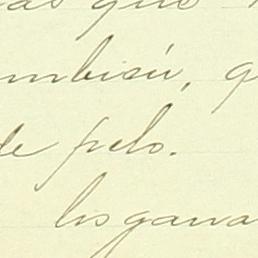 as que
mbién, q
de pelo.
los gana